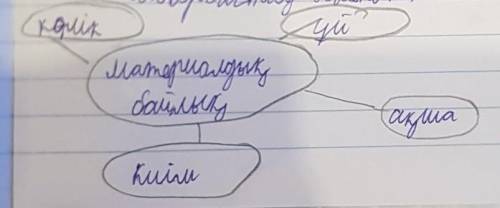 көлік
үй
материалдық
байлық
ақша
Киім